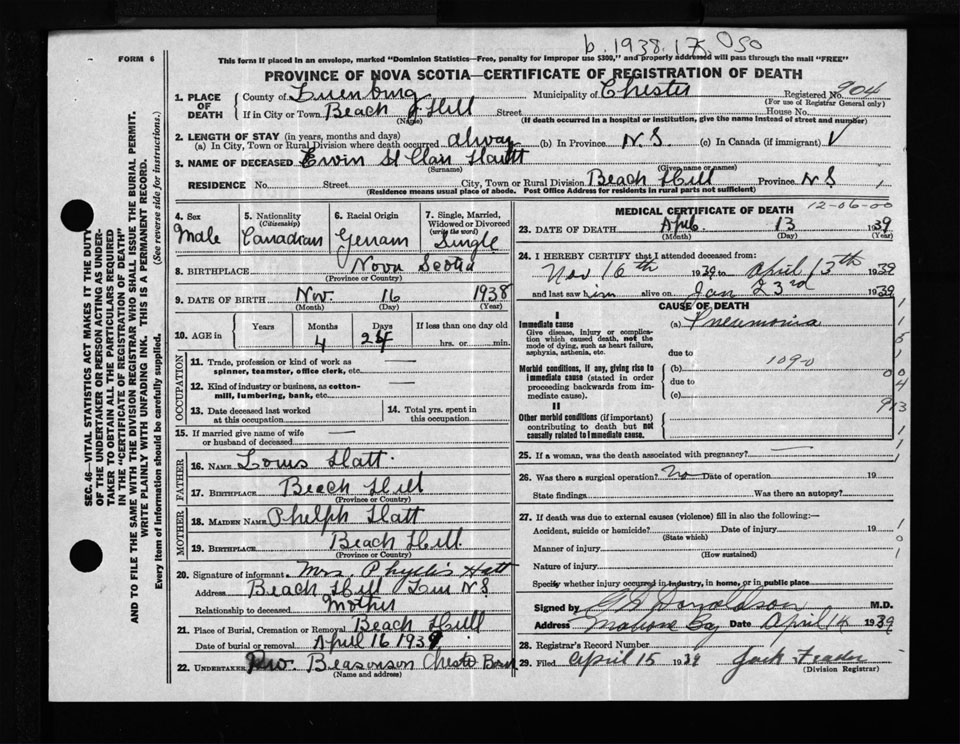 b. 1938. 175050
FORM 6
This form if placed in an envelope, marked "Dominion Statistics—Free, penalty for improper use $300," and properly addressed will pass through the mail "FREE"
PROVINCE OF NOVA SCOTIA—CERTIFICATE OF REGISTRATION OF DEATH
1. PLACE OF DEATH
County of Lunenburg Municipality of Chester Registered No. 904
(For use of Registrar General only)
If in City or Town Beach Hill Street House No.
(Name) (If death occurred in a hospital or institution, give the name instead of street and number)
2. LENGTH OF STAY (in years, months and days)
(a) In City, Town or Rural Division where death occurred alway (b) In Province N.S (c) In Canada (if immigrant) √
3. NAME OF DECEASED Ervin St Clair Hatt
(Surname) (Given name or names)
RESIDENCE No. Street City, Town or Rural Division Beach Hill Province N S
(Residence means usual place of abode. Post Office Address for residents in rural parts not sufficient)
4. Sex
Male
5. Nationality
(Citizenship)
Canadian
6. Racial Origin
Germam
7. Single, Married, Widowed or Divorced
(write the word)
Single
8. BIRTHPLACE Nova Scotia
(Province or Country)
9. DATE OF BIRTH Nov. 16 1938
(Month) (Day) (Year)
10. AGE in
Years Months Days If less than one day old
4 24 hrs. or min.
OCCUPATION
11. Trade, profession or kind of work as spinner, teamster, office clerk, etc. —
12. Kind of industry or business, as cotton-mill, lumbering, bank, etc. —
13. Date deceased last worked at this occupation
14. Total yrs. spent in this occupation
15. If married give name of husband or wife of deceased —
FATHER
16. NAME Louis Hatt
17. BIRTHPLACE Beach Hill
(Province or Country)
MOTHER
18. MAIDEN NAME Phelph Hatt
19. BIRTHPLACE Beach Hill
(Province or Country)
20. Signature of informant Mrs Phyllis Hatt
Address Beach Hill Lun N S
Relationship to deceased Mother
21. Place of Burial, Cremation or Removal Beach Hill
Date of burial or removal April 16 1939
22. UNDERTAKER Chester
(Name and address)
MEDICAL CERTIFICATE OF DEATH
12-06-00
23. DATE OF DEATH Apl. 13 1939
(Month) (Day) (Year)
24. I HEREBY CERTIFY that I attended deceased from:
Nov 16th 1939 to April 13th 1939
and last saw him alive on Jan 23rd 1939
CAUSE OF DEATH
I
Immediate cause
Give disease, injury or complication which caused death, not the mode of dying, such as heart failure, asphyxia, asthenia, etc.
(a) Pneumonia
due to
Morbid conditions, if any, giving rise to immediate cause (stated in order proceeding backwards from immediate cause).
(b) 109-0
due to
(c)
II
Other morbid conditions (if important) contributing to death but not causally related to immediate cause.
25. If a woman, was the death associated with pregnancy? —
26. Was there a surgical operation? No Date of operation 19
State findings Was there an autopsy?
27. If death was due to external causes (violence) fill in also the following:
Accident, suicide or homicide? Date of injury 19
(State which)
Manner of injury
(How sustained)
Nature of injury
Specify whether injury occurred in industry, in home, or in public place
Signed by Donaldson M.D.
Address Mahone Bay Date April 14 1939
28. Registrar's Record Number
29. Filed April 15 1939 Jack
(Division Registrar)
SEC. 46—VITAL STATISTICS ACT MAKES IT THE DUTY OF THE UNDERTAKER OR PERSON ACTING AS UNDERTAKER TO OBTAIN ALL THE PARTICULARS REQUIRED IN THE "CERTIFICATE OF REGISTRATION OF DEATH"
AND TO FILE THE SAME WITH THE DIVISION REGISTRAR WHO SHALL ISSUE THE BURIAL PERMIT.
WRITE PLAINLY WITH UNFADING INK. THIS IS A PERMANENT RECORD.
Every item of information should be carefully supplied. (See reverse side for instructions.)